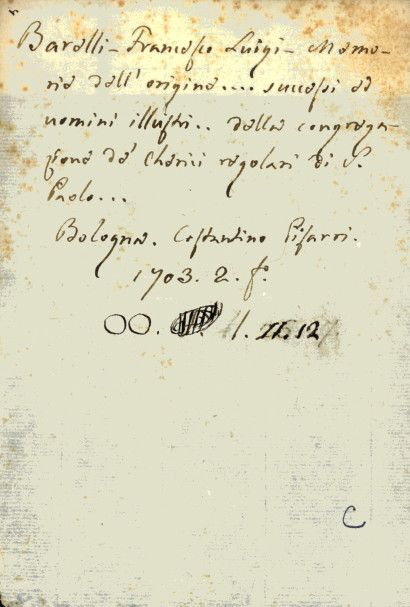 Barelli - Francesco Luigi - Memo-
rie dell' origine.... successi ed
uomini illustri.. della congrega-
zione de' Cherici regolari di S.
Paolo...
Bologna. Costantino Pisarri.
1703. 2. fo.
OO. I. II. 12
C